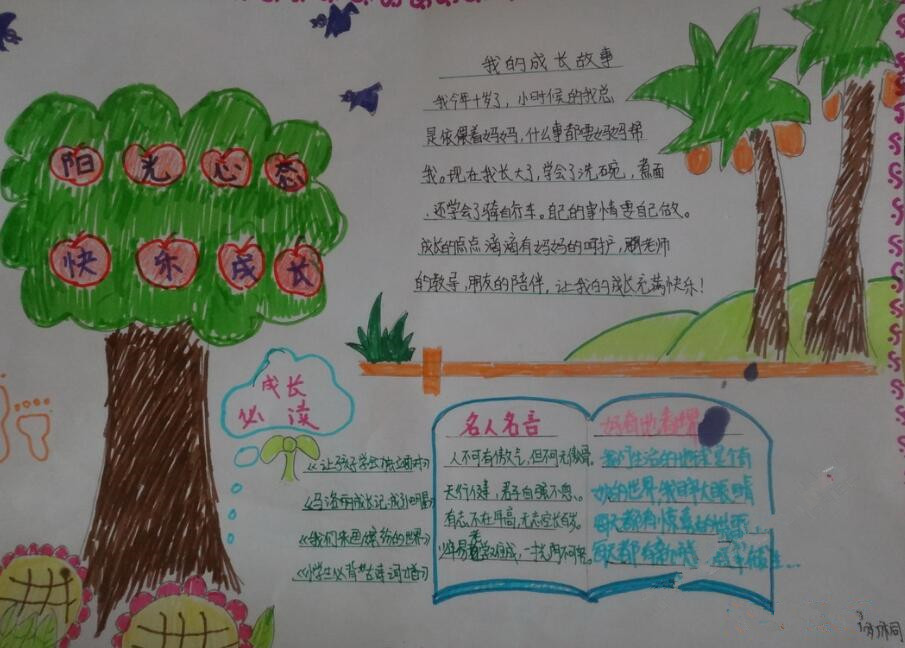 阳光心态
快乐成长
我的成长故事
我今年十岁了，小时候的我总
是依偎着妈妈，什么事都要妈妈帮
我。现在我长大了，学会了洗碗，煮面
，还学会了骑自行车。自己的事情要自己做。
成长的点点滴滴有妈妈的呵护，老师
的教导，朋友的陪伴，让我的成长充满快乐！
成长
必读
《让孩子学会独立面对》
《马洛的成长记》
《我们来画缤纷的世界》
《小学生必背古诗词》
名人名言
人不可有傲气，但不可无傲骨。
天行健，君子自强不息。
有志不在年高，无志空长百岁。
少年易学老难成，一寸光阴不可轻。
我们生活的地球是个有
的世界，我睁大眼睛
每天都有惊喜的
每天都有新